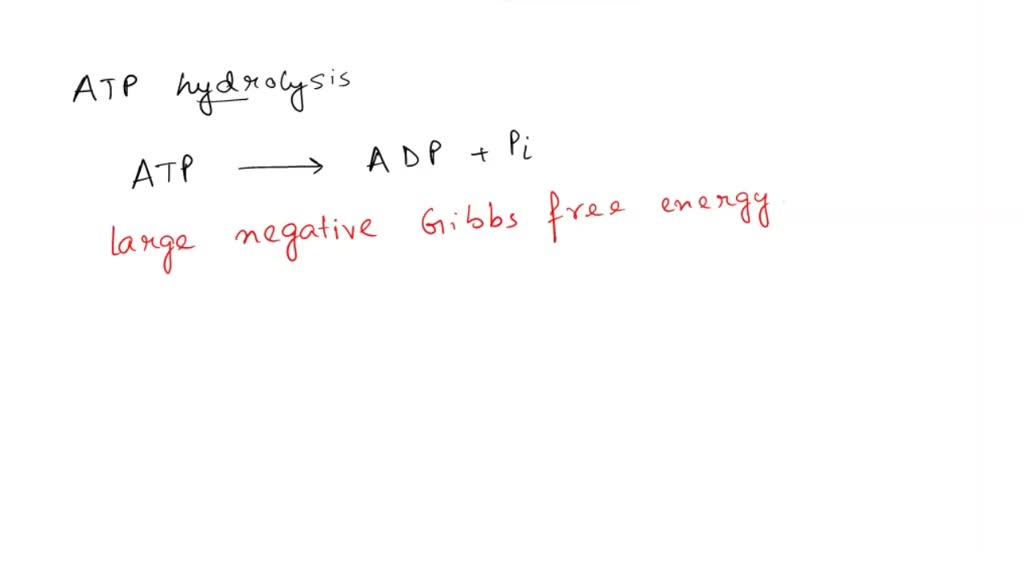 ATP hydrolysis
ATP → ADP + Pi
large negative Gibbs free energy